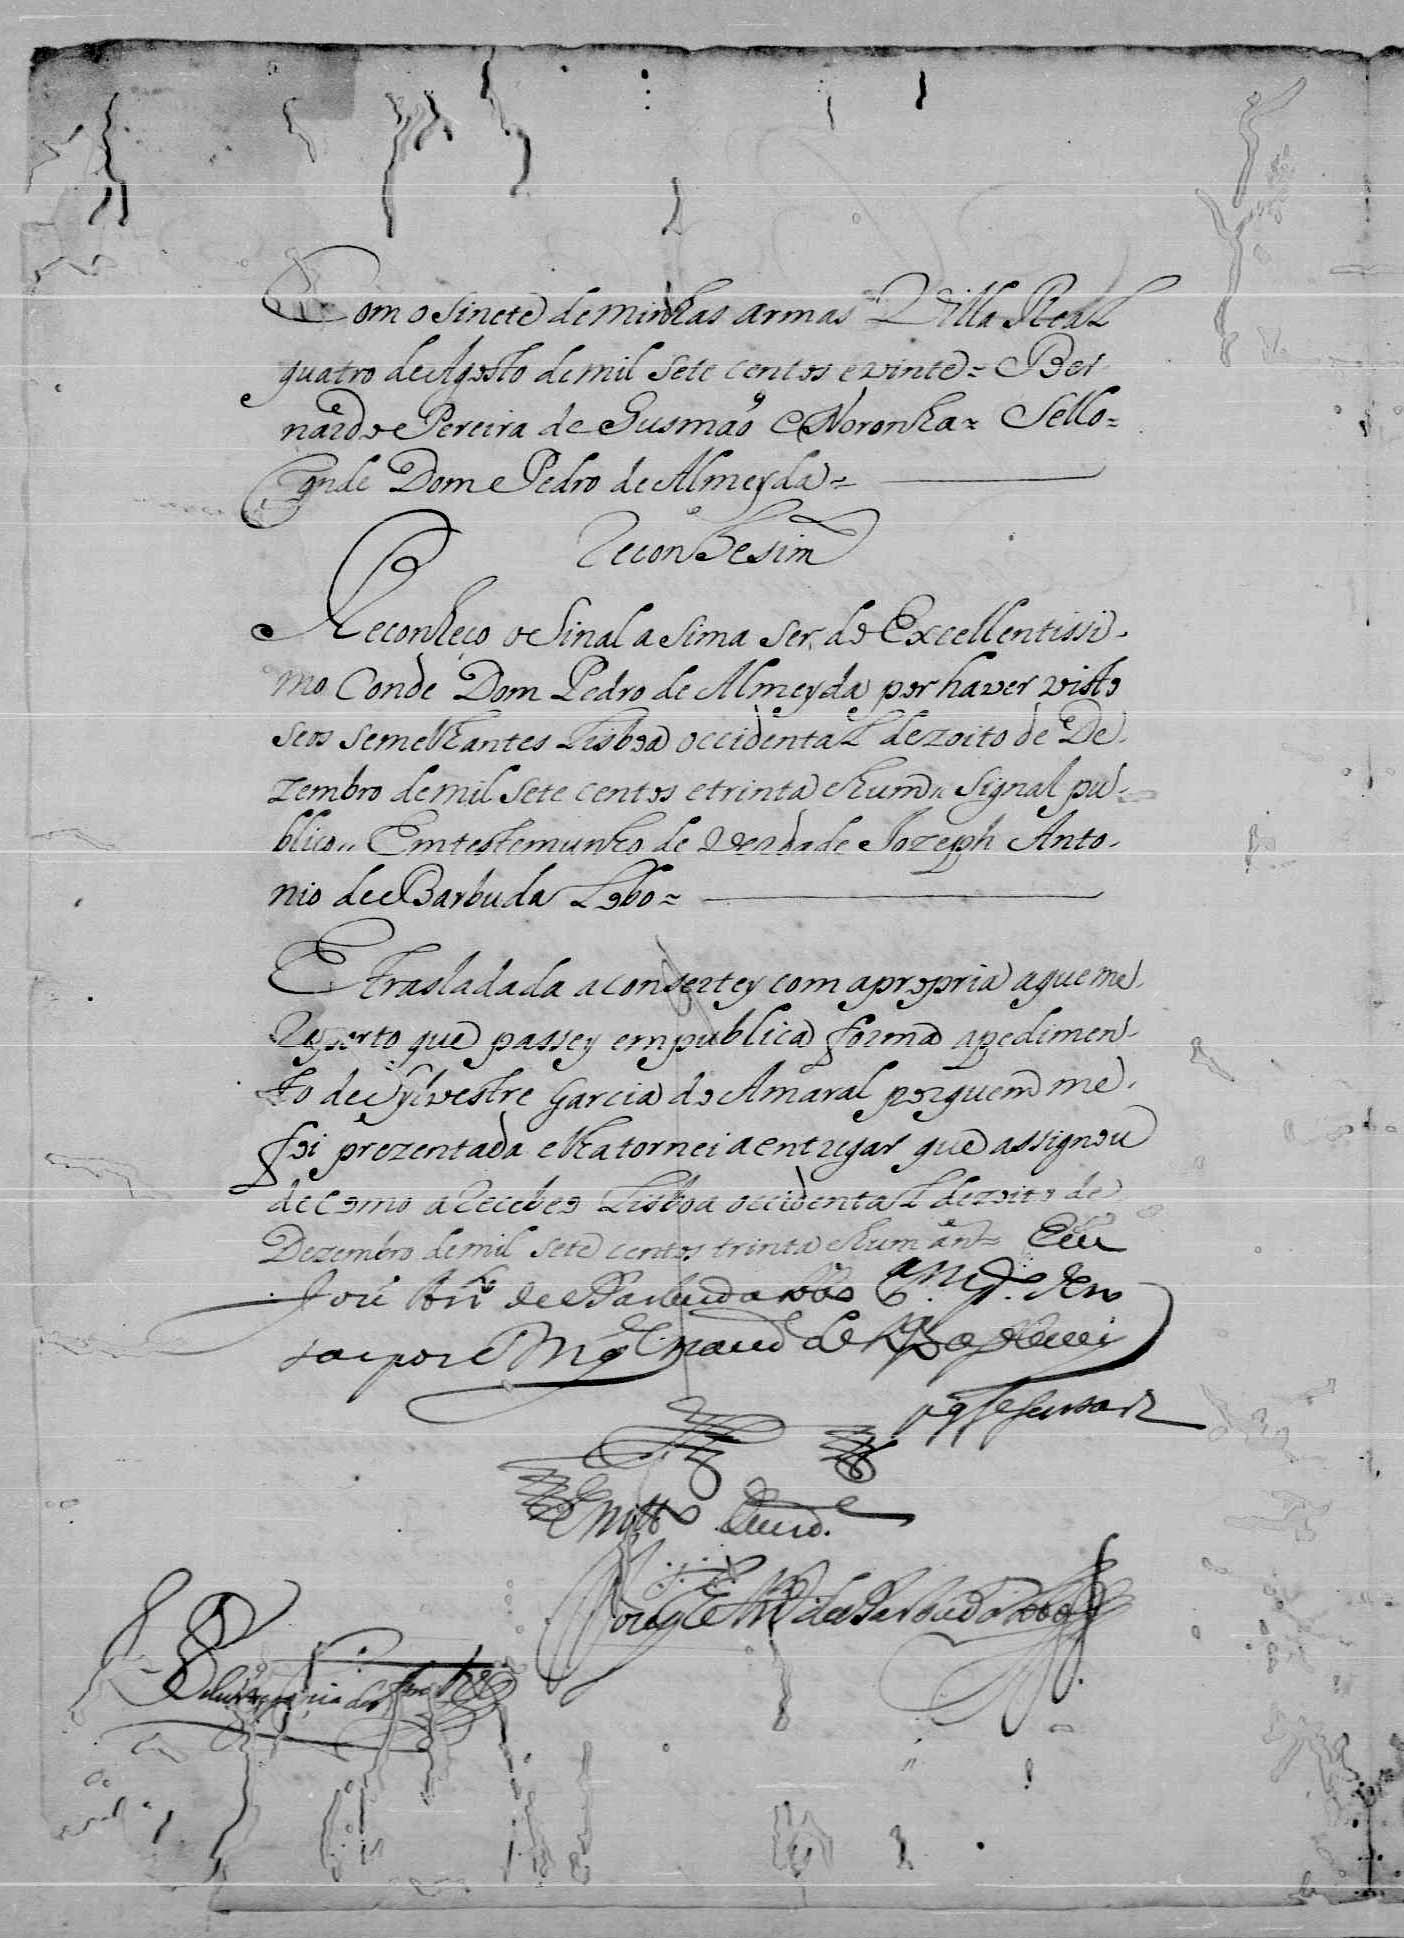 Com o Sinete de minhas armas Villa Real
quatro de Agosto de mil Sete centos e vinte = Ber
nardo Pereira de Gusmaõ e Noronha = Sello =
Conde Dom Pedro de Almeyda =
Reconhesim.to
Reconheço o Sinal asima Ser do Excellentissi-
mo Conde Dom Pedro de Almeyda por haver visto
seos semelhantes Lisboa occidental dezoito de De-
zembro de mil Sete centos e trinta e hum = Signal pu-
blico = Em testemunho de Verdade Jozeph Anto-
nio de Barbuda Lobo =
E trasladada a consertey com a propria a que me
Reporto que passey em publica forma a pedimen-
to de Sylvestre Garcia do Amaral por quem me
foi prezentada e lha tornei a entregar que assignou
de como a Recebeo Lisboa occidental dezoito de
Dezembro de mil Sete centos trinta e hum an.s Eu
José An.to de Barbuda Lobo
Em test.o de verd.e
Jozeph An.to de Barbuda Lobo